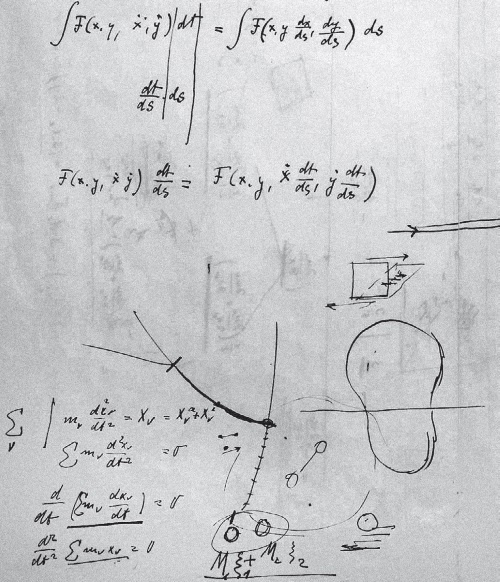 ∫F(x.y, ẋ, ẏ) dt = ∫F(x.y dx/ds, dy/ds) ds
dt/ds ds
F(x.y, ẋ ẏ) dt/ds = F(x.y, ẋ dt/ds, ẏ dt/ds)
Σν | mν d²xν/dt² = Xν = Xν^a + Xν^i
Σ mν d²xν/dt² = 0
d/dt (Σ mν dxν/dt) = 0
d²/dt² Σ mν xν = 0
M₁ ξ₁ + M₂ ξ₂